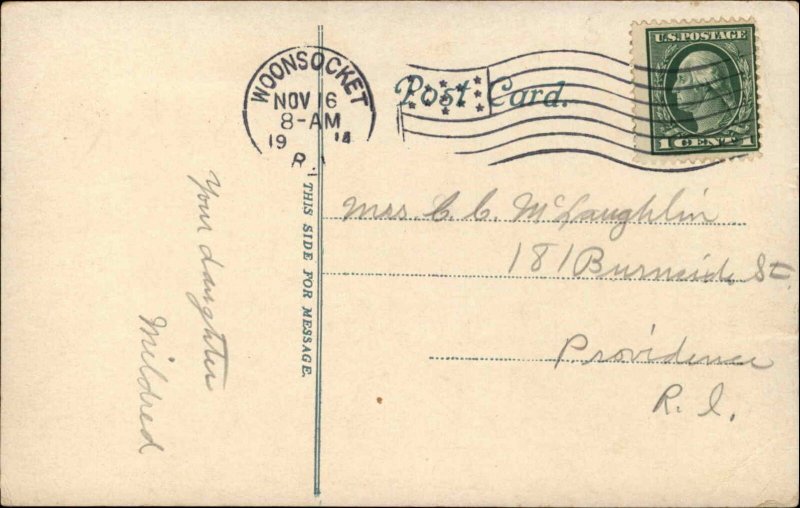 WOONSOCKET
NOV 16
8-AM
1914
R.I
Post Card.
U.S. POSTAGE
1 CENT 1
THIS SIDE FOR MESSAGE.
Your daughter
Mildred
Mrs. C. C. McLaughlin
181 Burnside St.
Providence
R. I.